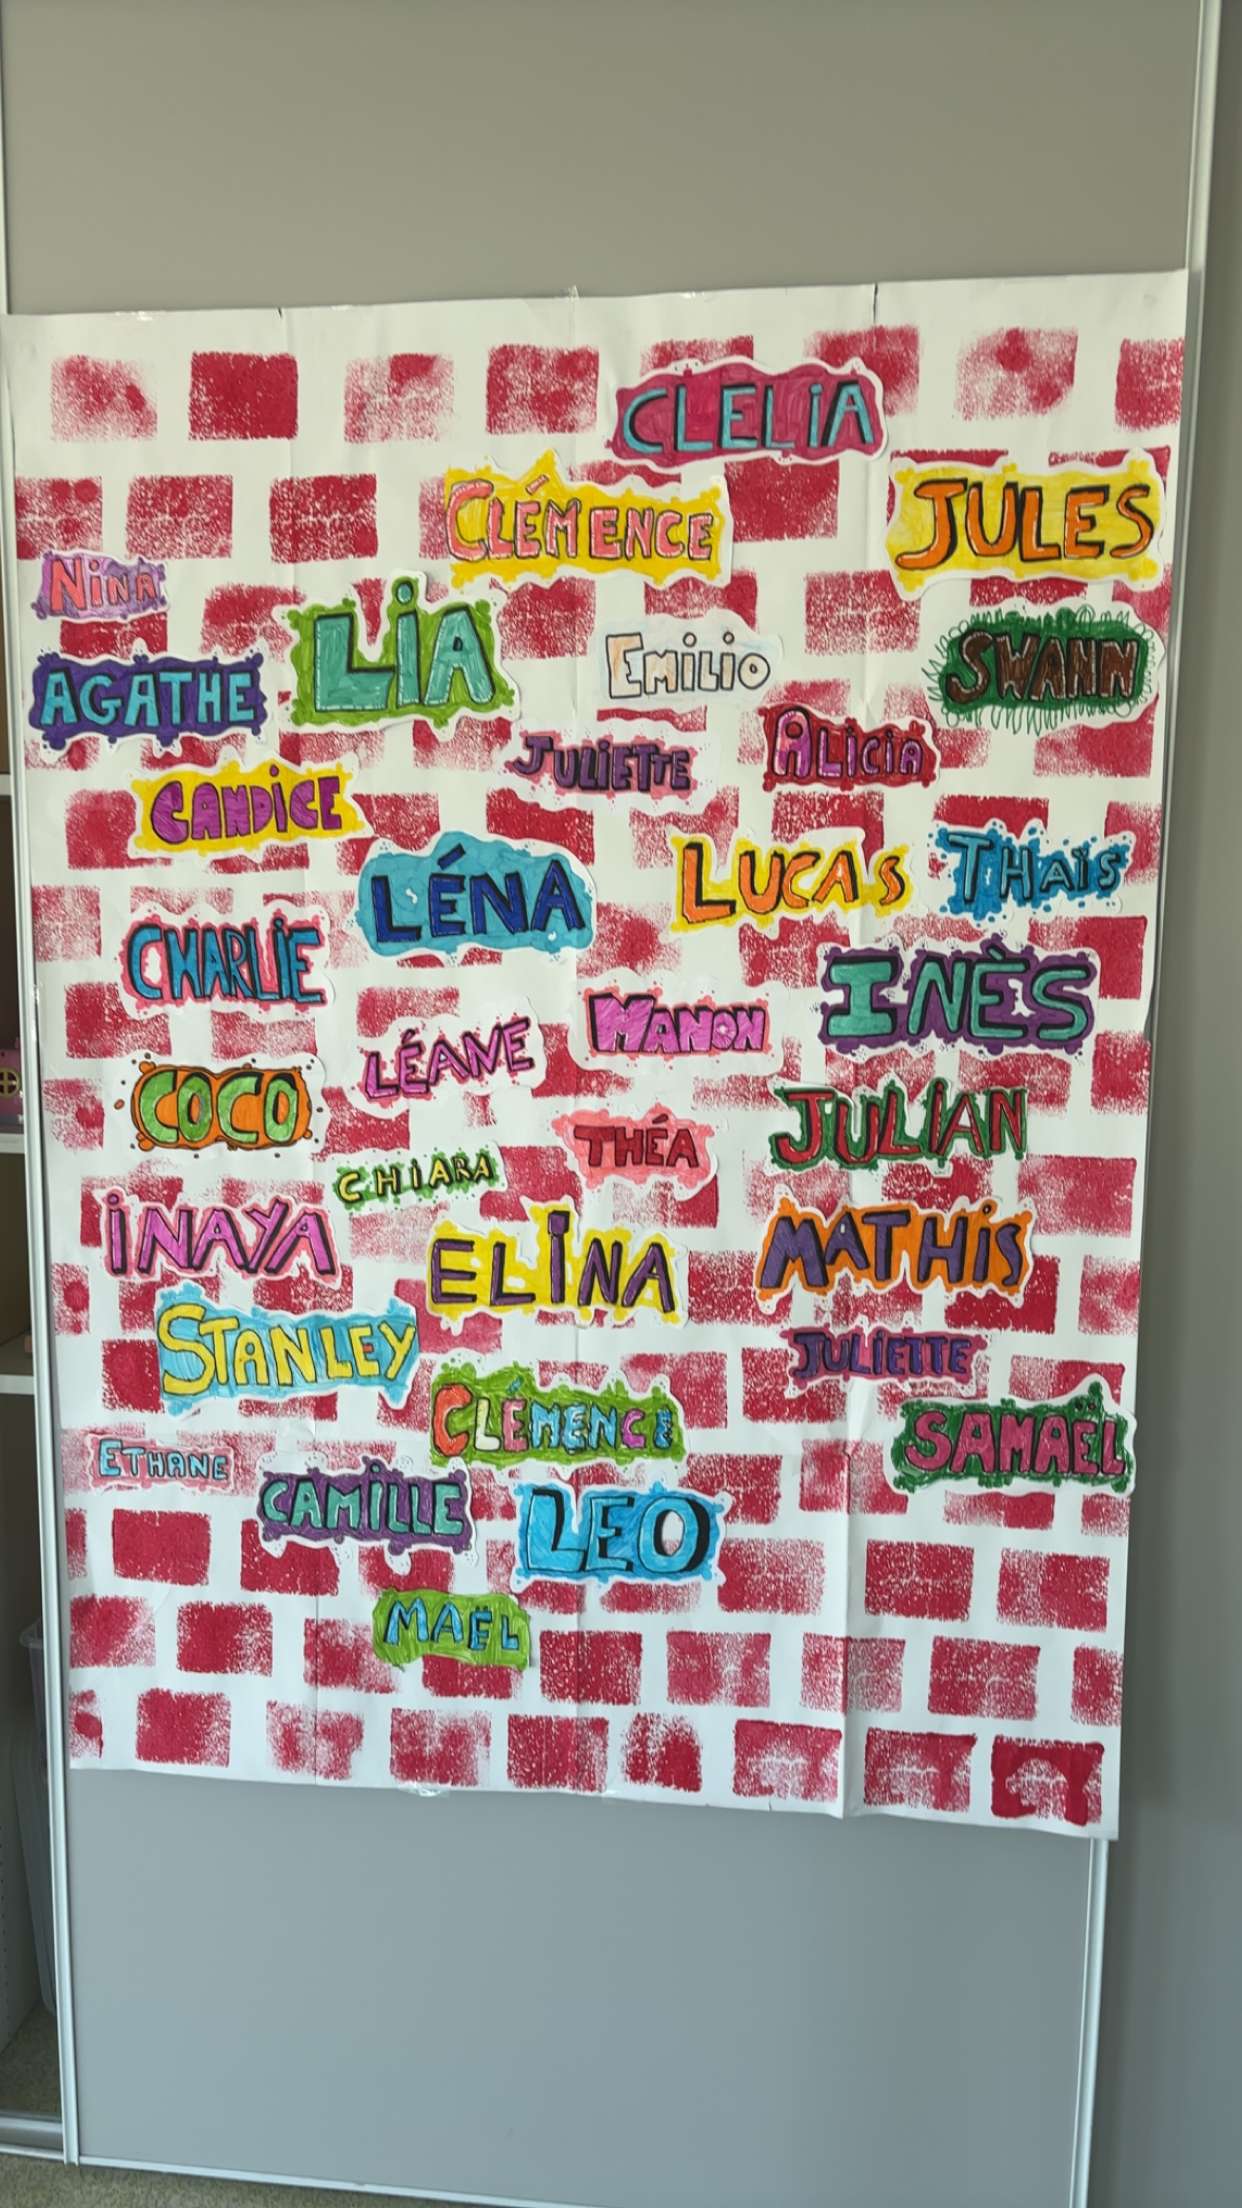 CLELiA
CLÉMENCE
JULES
NiNA
LiA
EMiLiO
SWANN
AGATHE
JULiETTE
ALiCiA
CANDiCE
LÉNA
LUCAS
THAïS
CHARLiE
INÈS
MANON
LÉANE
COCO
JULiAN
THÉA
CHiARA
iNAYA
ELiNA
MATHiS
STANLEY
JULiETTE
CLÉMENCE
SAMAËL
ETHANE
CAMiLLE
LEO
MAËL